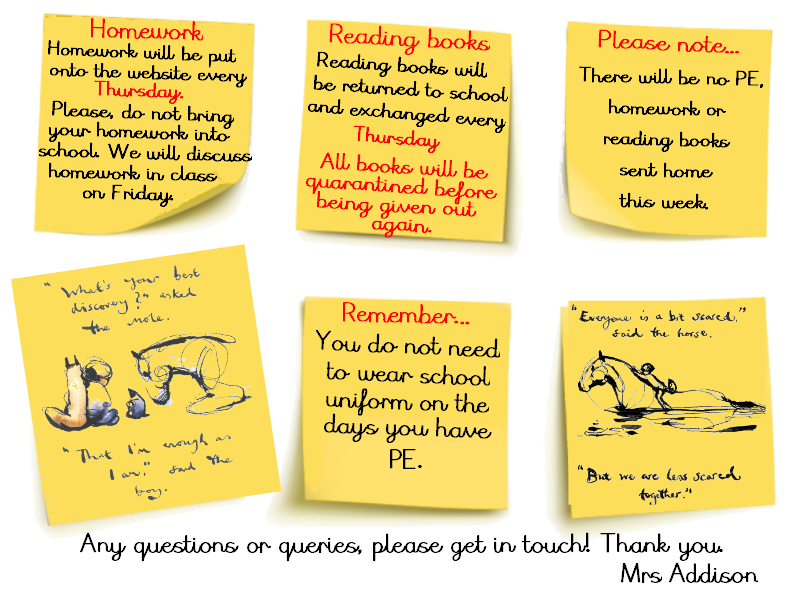 Homework
Homework will be put
onto the website every
Thursday.
Please, do not bring
your homework into
school. We will discuss
homework in class
on Friday.
Reading books
Reading books will
be returned to school
and exchanged every
Thursday
All books will be
quarantined before
being given out
again.
Please note...
There will be no PE,
homework or
reading books
sent home
this week.
"What's your best
discovery?" asked
the mole.
"That I'm enough as
I am," said the
boy.
Remember...
You do not need
to wear school
uniform on the
days you have
PE.
"Everyone is a bit scared,"
said the horse.
"But we are less scared
together."
Any questions or queries, please get in touch! Thank you.
Mrs Addison